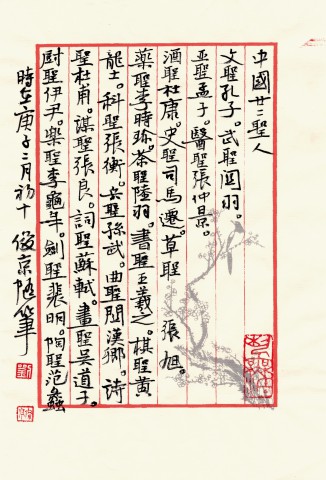 中國廿二聖人
文聖孔子。武聖関羽。
亚聖孟子。醫聖張仲景。
酒聖杜康。史聖司馬遷。草聖張旭。
藥聖李時珍。茶聖陸羽。書聖王羲之。棋聖黄
龍士。科聖張衡。兵聖孫武。曲聖関漢卿。詩
聖杜甫。謀聖張良。詞聖蘇軾。畫聖吴道子。
厨聖伊尹。樂聖李龜年。剑聖裴旻。陶聖范蠡
時在庚子二月初十 俊京随筆